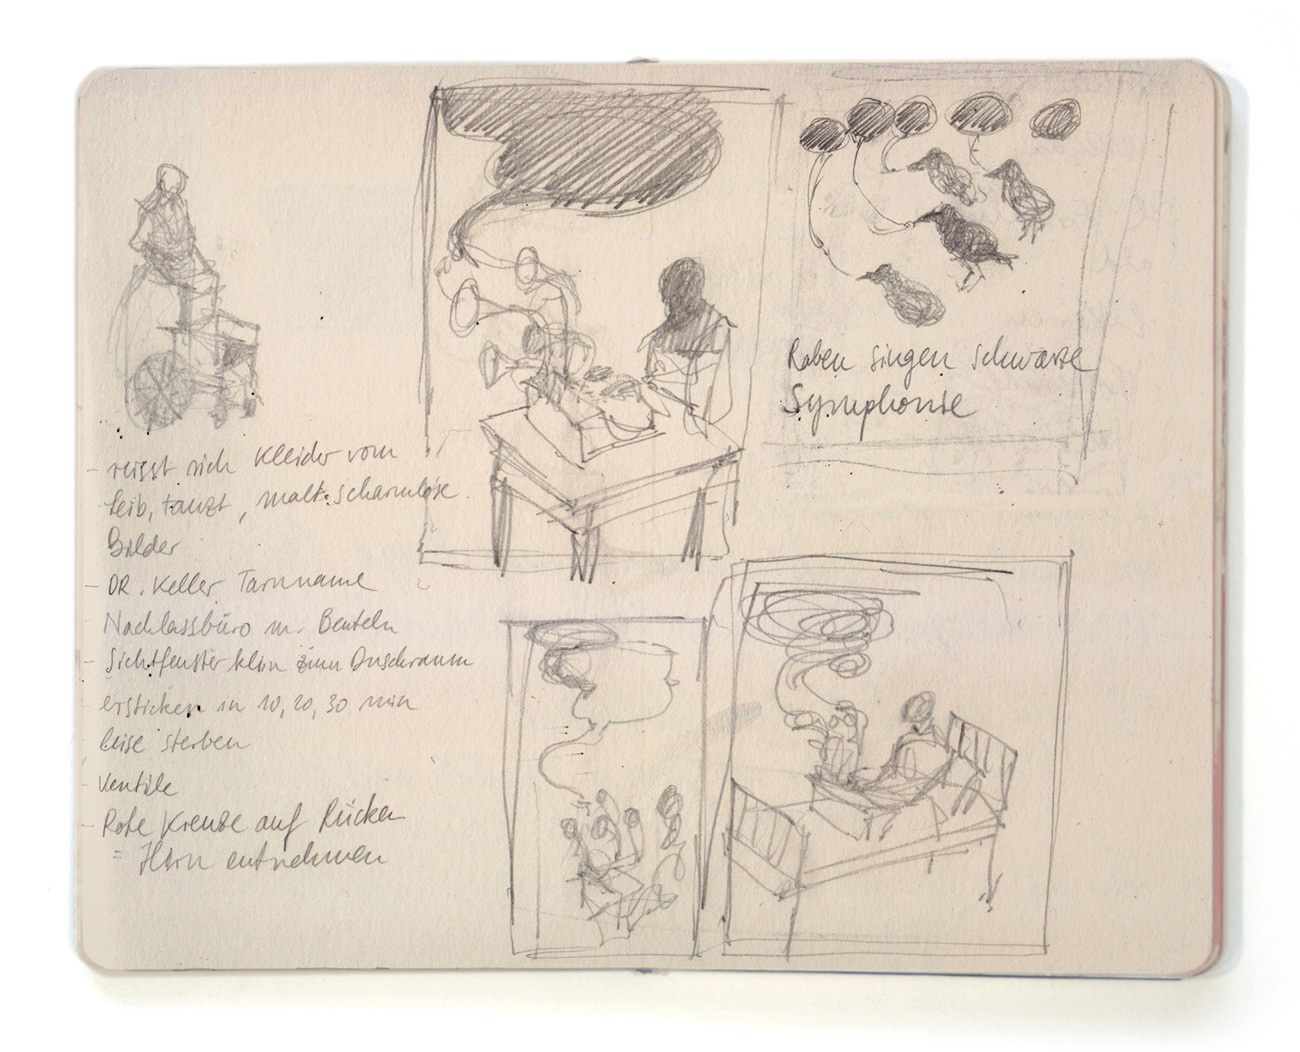 - reisst sich Kleider vom
Leib, tanzt, malt schamlose
Bilder
- DR. Keller Tarnname
Nachlassbüro m. Beuteln
- Sichtfenster klein zum Duschraum
ersticken in 10, 20, 30 min
leise sterben
- Ventile
- Rote Kreuze auf Rücken
= Hirn entnehmen
Raben singen schwarze
Symphonie